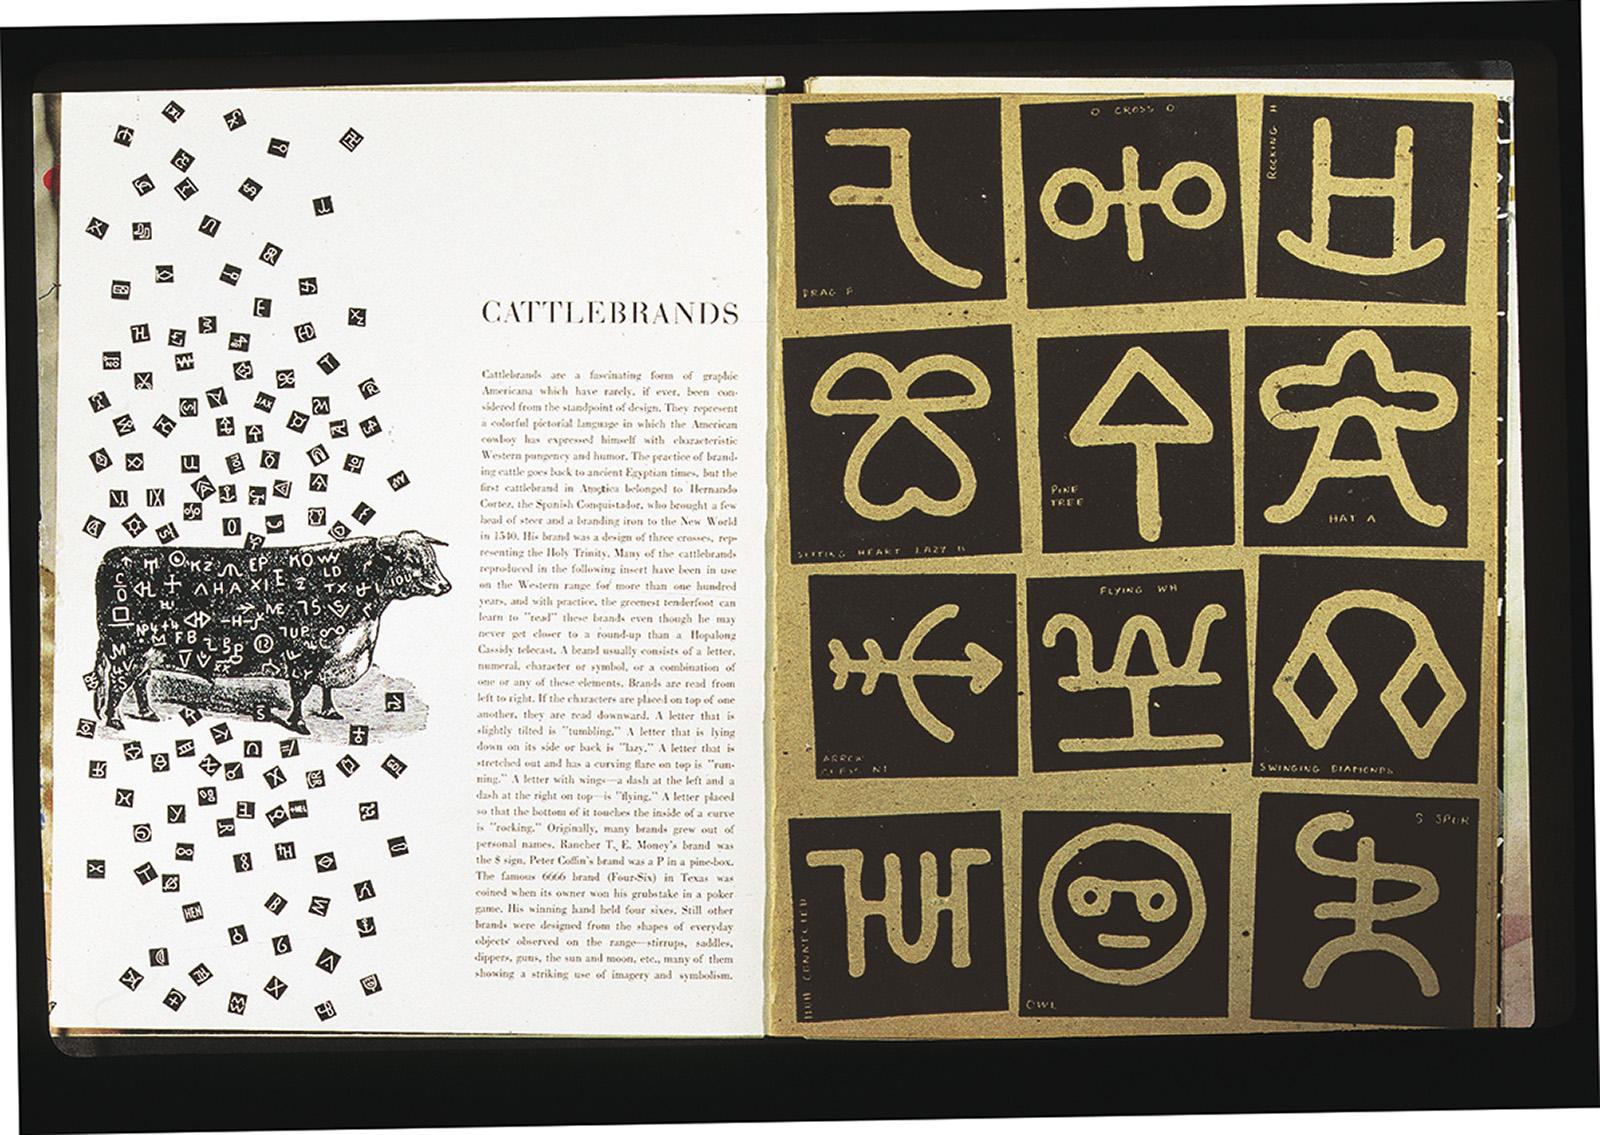 CATTLEBRANDS
Cattlebrands are a fascinating form of graphic
Americana which have rarely, if ever, been con-
sidered from the standpoint of design. They represent
a colorful pictorial language in which the American
cowboy has expressed himself with characteristic
Western pungency and humor. The practice of brand-
ing cattle goes back to ancient Egyptian times, but the
first cattlebrand in America belonged to Hernando
Cortez, the Spanish Conquistador, who brought a few
head of steer and a branding iron to the New World
in 1540. His brand was a design of three crosses, rep-
resenting the Holy Trinity. Many of the cattlebrands
reproduced in the following insert have been in use
on the Western range for more than one hundred
years, and with practice, the greenest tenderfoot can
learn to "read" these brands even though he may
never get closer to a round-up than a Hopalong
Cassidy telecast. A brand usually consists of a letter,
numeral, character or symbol, or a combination of
one or any of these elements. Brands are read from
left to right. If the characters are placed on top of one
another, they are read downward. A letter that is
slightly tilted is "tumbling." A letter that is lying
down on its side or back is "lazy." A letter that is
stretched out and has a curving flare on top is "run-
ning." A letter with wings—a dash at the left and a
dash at the right on top—is "flying." A letter placed
so that the bottom of it touches the inside of a curve
is "rocking." Originally, many brands grew out of
personal names. Rancher T. E. Money's brand was
the $ sign. Peter Coffin's brand was a P in a pine-box.
The famous 6666 brand (Four-Six) in Texas was
coined when its owner won his grubstake in a poker
game. His winning hand held four sixes. Still other
brands were designed from the shapes of everyday
objects observed on the range—stirrups, saddles,
dippers, guns, the sun and moon, etc., many of them
showing a striking use of imagery and symbolism.
DRAG F
O CROSS O
ROCKING H
HEART LAZY B
PINE
TREE
HAT A
ARROW
FLYING WH
SWINGING DIAMONDS
HUH CONNECTED
OWL
S SPUR
KZ
EP
KO
LD
IOU
AHA
XIE
TX
NE
75
FB
7UP
12
HEN